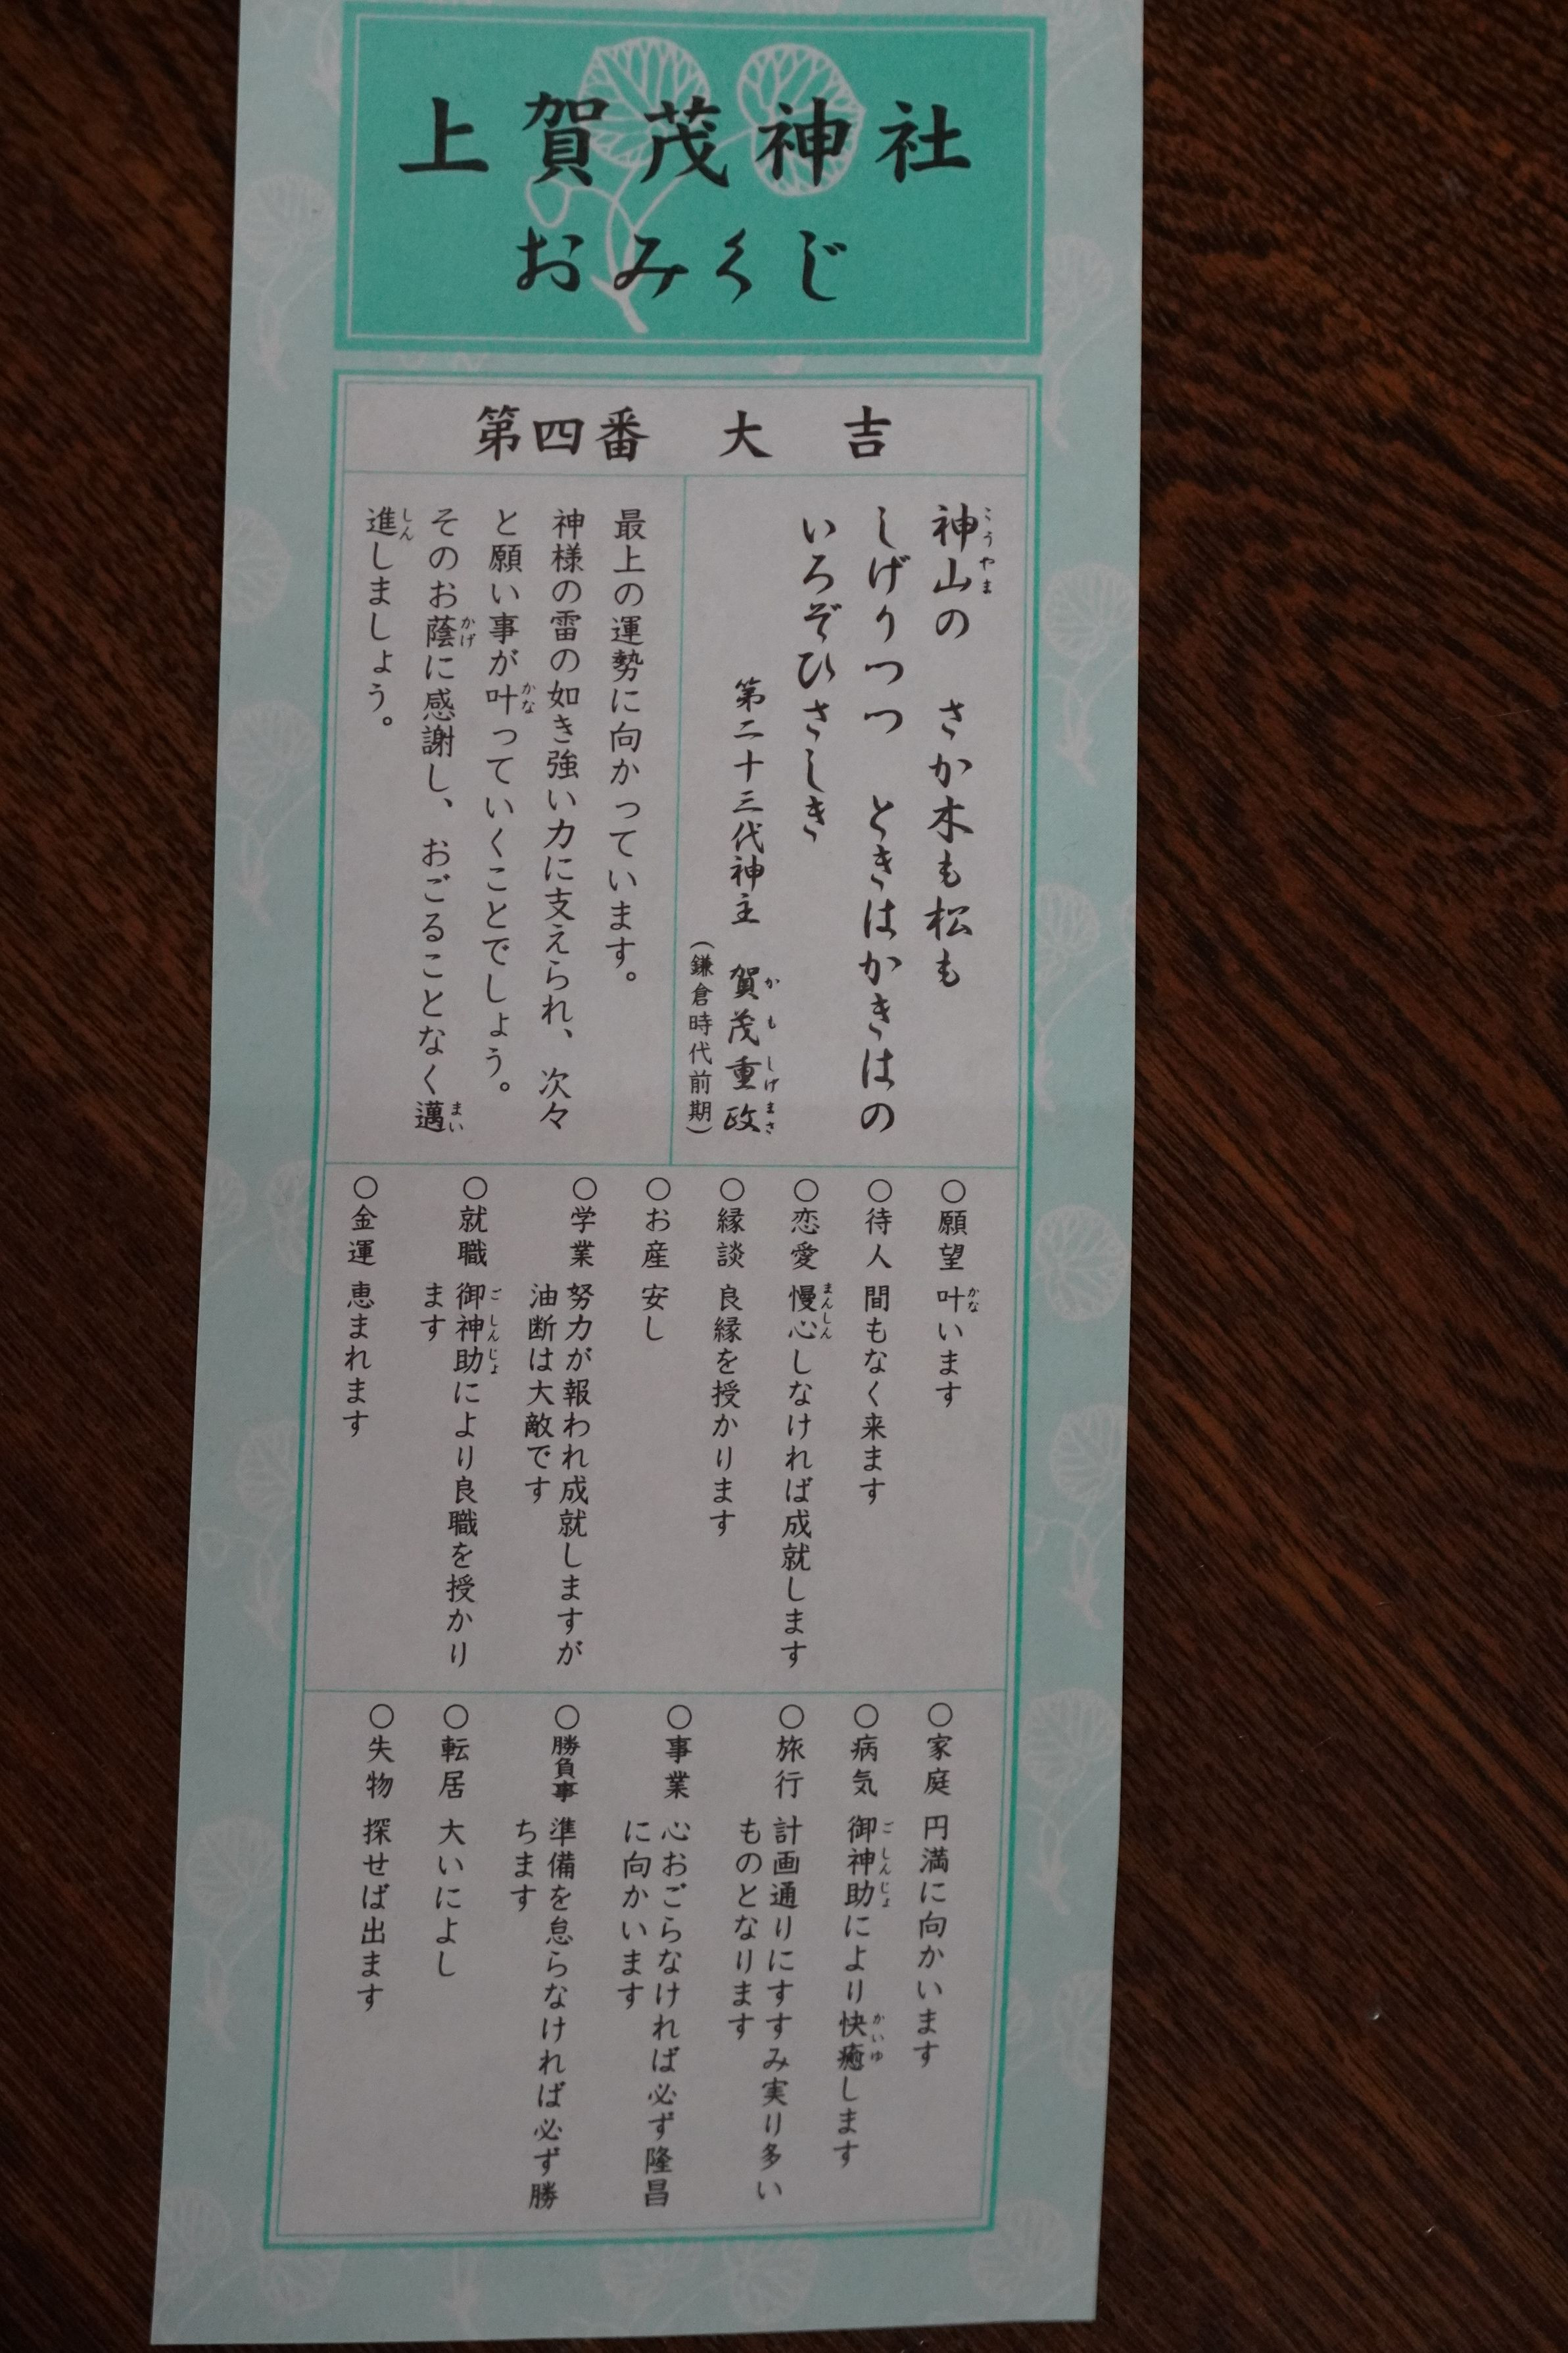 上賀茂神社
おみくじ
第四番 大 吉
神山の さか木も松も
しげりつつ ときはかきはの
いろぞひさしき
第二十三代神主 賀茂重政
(鎌倉時代前期)
最上の運勢に向かっています。
神様の雷の如き強い力に支えられ、次々
と願い事が叶っていくことでしょう。
そのお蔭に感謝し、おごることなく邁
進しましょう。
○願望 叶います
○待人 間もなく来ます
○恋愛 慢心しなければ成就します
○縁談 良縁を授かります
○お産 安し
○学業 努力が報われ成就しますが
油断は大敵です
○就職 御神助により良職を授かり
ます
○金運 恵まれます
○家庭 円満に向かいます
○病気 御神助により快癒します
○旅行 計画通りにすすみ実り多い
ものとなります
○事業 心おごらなければ必ず隆昌
に向かいます
○勝負事 準備を怠らなければ必ず勝
ちます
○転居 大いによし
○失物 探せば出ます